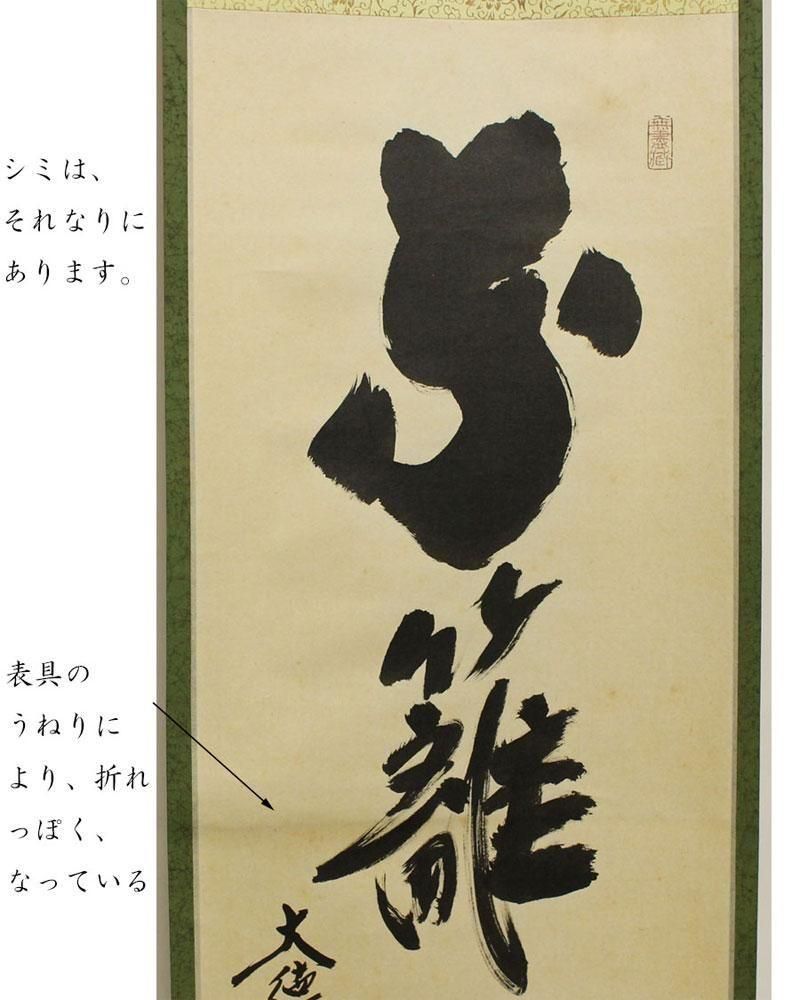 シミは、
それなりに
あります。
表具の
うねりに
より、折れ
っぽく、
なっている
無盡藏
籬
大徳